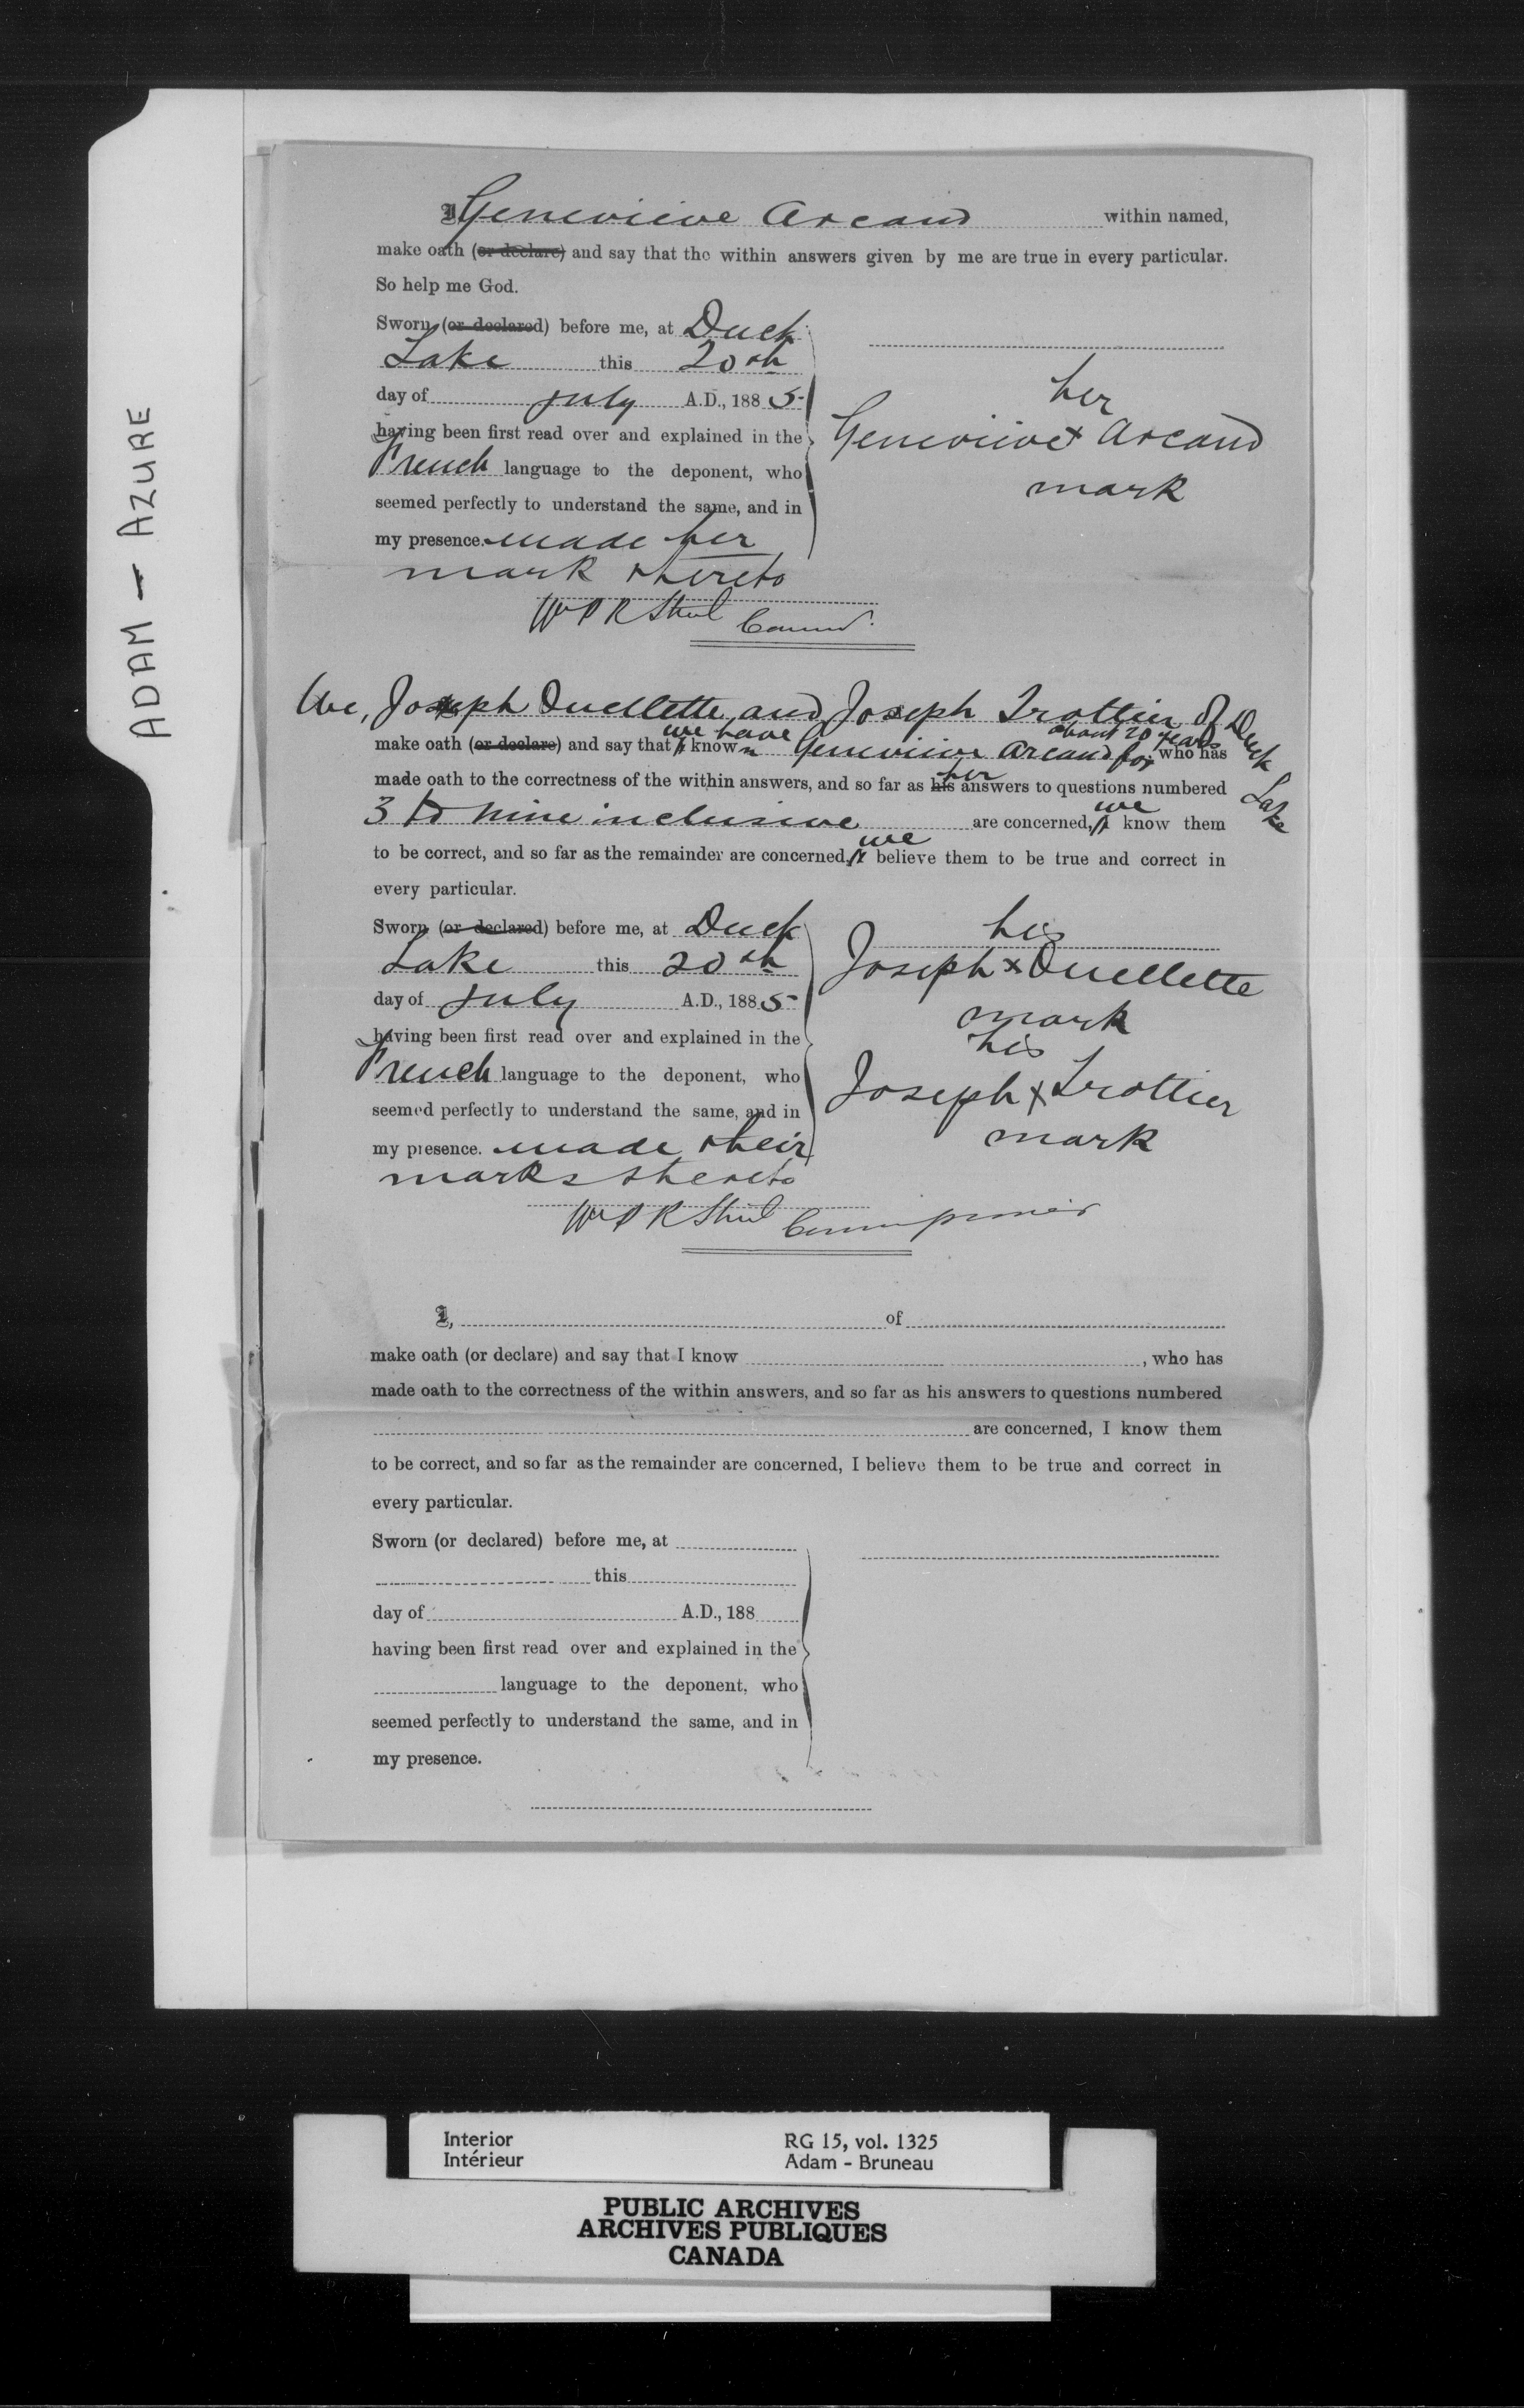 ADAM - AZURE
I Genevieve Arcand within named,
make oath (or declare) and say that the within answers given by me are true in every particular.
So help me God.
Sworn (or declared) before me, at Duck
Lake this 20th
day of July A.D., 1885
having been first read over and explained in the
French language to the deponent, who
seemed perfectly to understand the same, and in
my presence. made her
mark thereto
her
Genevieve x Arcand
mark
Wm P R Street Commr.
We, Joseph Ouellette and Joseph Trottier of Duck Lake
make oath (or declare) and say that I we have known Genevieve Arcand for about 20 years who has
made oath to the correctness of the within answers, and so far as his her answers to questions numbered
3 to nine inclusive are concerned, I we know them
to be correct, and so far as the remainder are concerned, I we believe them to be true and correct in
every particular.
Sworn (or declared) before me, at Duck
Lake this 20th
day of July A.D., 1885
having been first read over and explained in the
French language to the deponent, who
seemed perfectly to understand the same, and in
my presence. made their
marks thereto
his
Joseph x Ouellette
mark
his
Joseph x Trottier
mark
Wm P R Street Commissioner
I, of
make oath (or declare) and say that I know , who has
made oath to the correctness of the within answers, and so far as his answers to questions numbered
are concerned, I know them
to be correct, and so far as the remainder are concerned, I believe them to be true and correct in
every particular.
Sworn (or declared) before me, at
this
day of A.D., 188
having been first read over and explained in the
language to the deponent, who
seemed perfectly to understand the same, and in
my presence.
Interior
Intérieur
RG 15, vol. 1325
Adam - Bruneau
PUBLIC ARCHIVES
ARCHIVES PUBLIQUES
CANADA